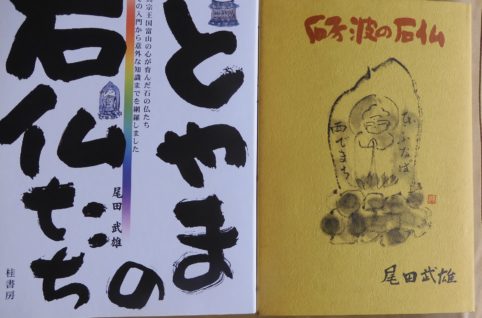 とやまの
石仏たち
真宗王国富山の心が育んだ石の仏たち
の入門から意外な知識までを網羅しました
尾田武雄
桂書房
砺波の石仏
西でまち
尾田武雄